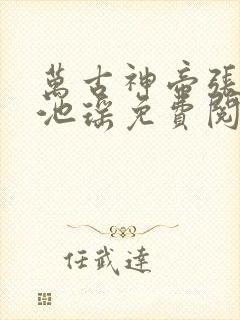 萬古神帝張
池瑤免費閱
任武達